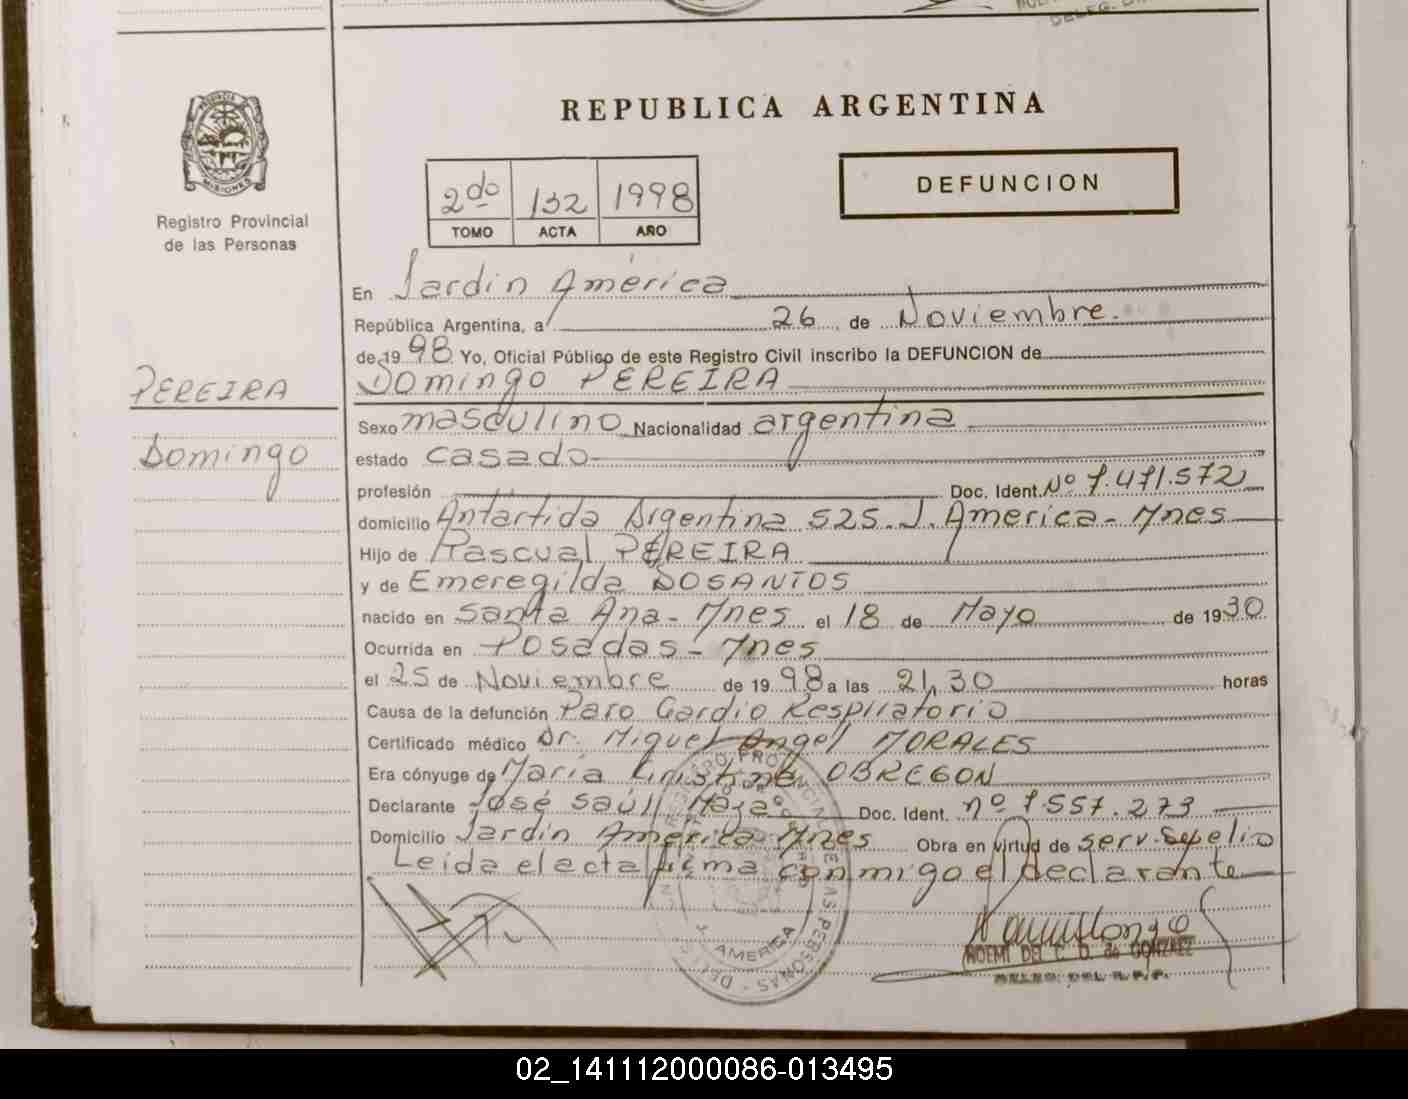 REPUBLICA ARGENTINA
DEFUNCION
2do 132 1998
TOMO ACTA AÑO
PROVINCIA DE
MISIONES
Registro Provincial
de las Personas
PEREIRA
Domingo
En Jardin América
República Argentina, a 26 de Noviembre.
de 19 98 Yo, Oficial Público de este Registro Civil inscribo la DEFUNCION de
Domingo PEREIRA
Sexo masculino Nacionalidad argentina
estado casado
profesión Doc. Ident. Nº 7.471.572
domicilio Antártida Argentina 525. J. América - Mnes
Hijo de Pascual PEREIRA
y de Emeregilda DOSANTOS
nacido en Santa Ana - Mnes el 18 de Mayo de 1930
Ocurrida en Posadas - Mnes
el 25 de Noviembre de 19 98 a las 21,30 horas
Causa de la defunción Paro Cardio Respiratorio
Certificado médico Dr. Miguel Angel MORALES
Era cónyuge de María Cristina OBREGON
Declarante José Saúl Doc. Ident. nº 7.557.273
Domicilio Jardin América Mnes Obra en virtud de serv. Sepelio
Leida el acta firma conmigo el declarante
J. AMERICA
NOEMI DEL C. D. de GONZALEZ
DELEG. DEL R.P.P.
02_141112000086-013495